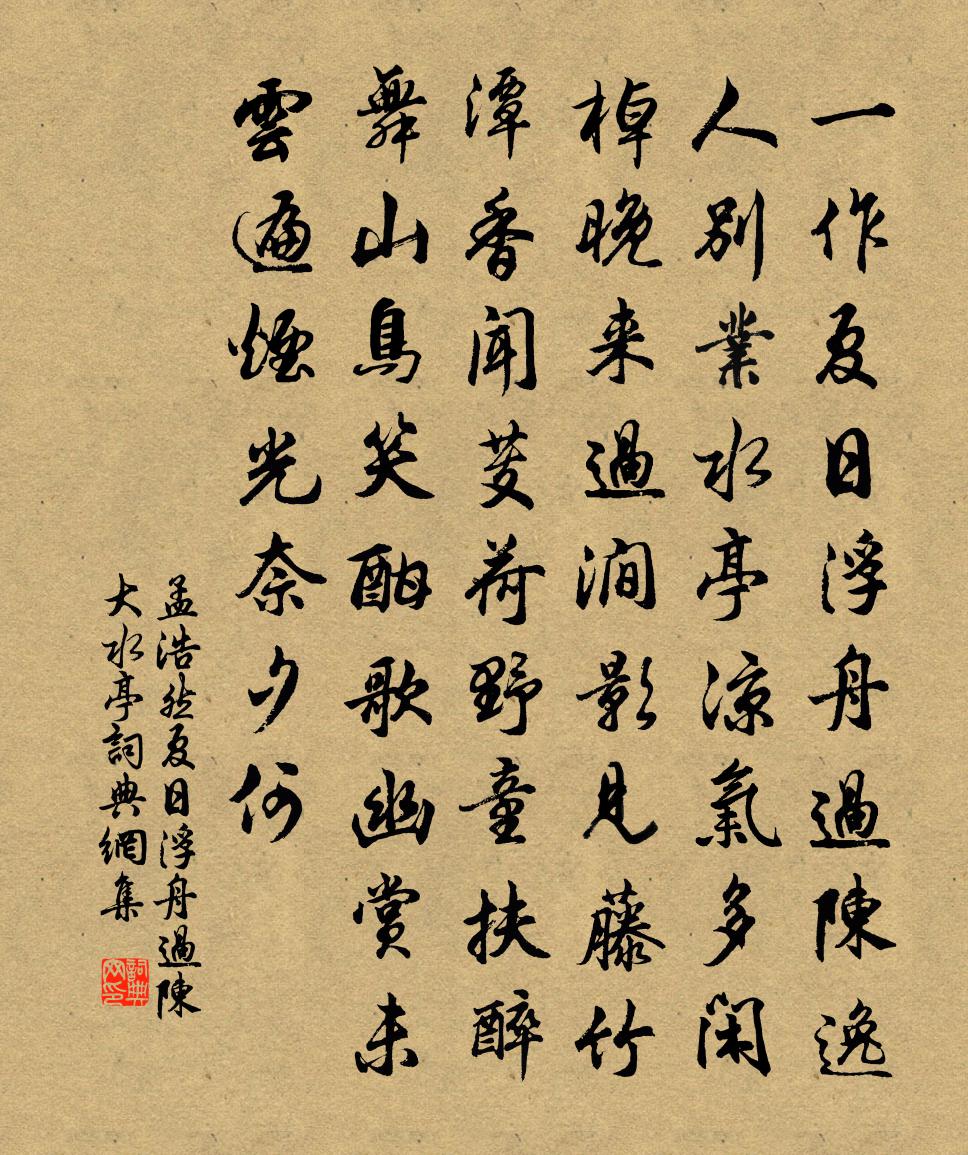 一作夏日浮舟過陳逸
人別業水亭涼氣多閑
棹晚来過澗影見藤竹
潭香聞芰荷野童扶醉
舞山鳥笑酣歌幽賞未
雲遍煙光奈夕何
孟浩然夏日浮舟過陳
大水亭詞典網集
詞典
网印